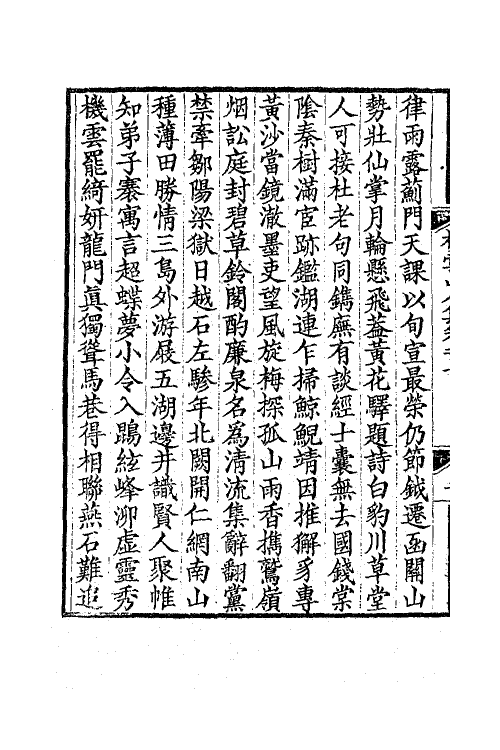 律雨露薊門天課以旬宣最榮仍節鉞遷函關山
勢壯仙掌月輪懸飛葢黃花驛題詩白豹川草堂
人可接杜老句同鐫廡有談經士囊無去國錢棠
陰秦樹滿宦跡鑑湖連乍掃鯨鯢靖因推獬豸專
黃沙當鏡澈墨吏望風旋梅探孤山雨香攜鷲嶺
烟訟庭封碧草鈴閣酌廉泉名爲清流集辭翻黨
禁牽鄒陽梁獄日越石左驂年北闕開仁網南山
種薄田勝情三島外游屐五湖邊井識賢人聚帷
知弟子褰寓言超蝶夢小令入鵾絃峰泖虛靈秀
機雲罷綺妍龍門眞獨聳馬巷得相聯燕石難追